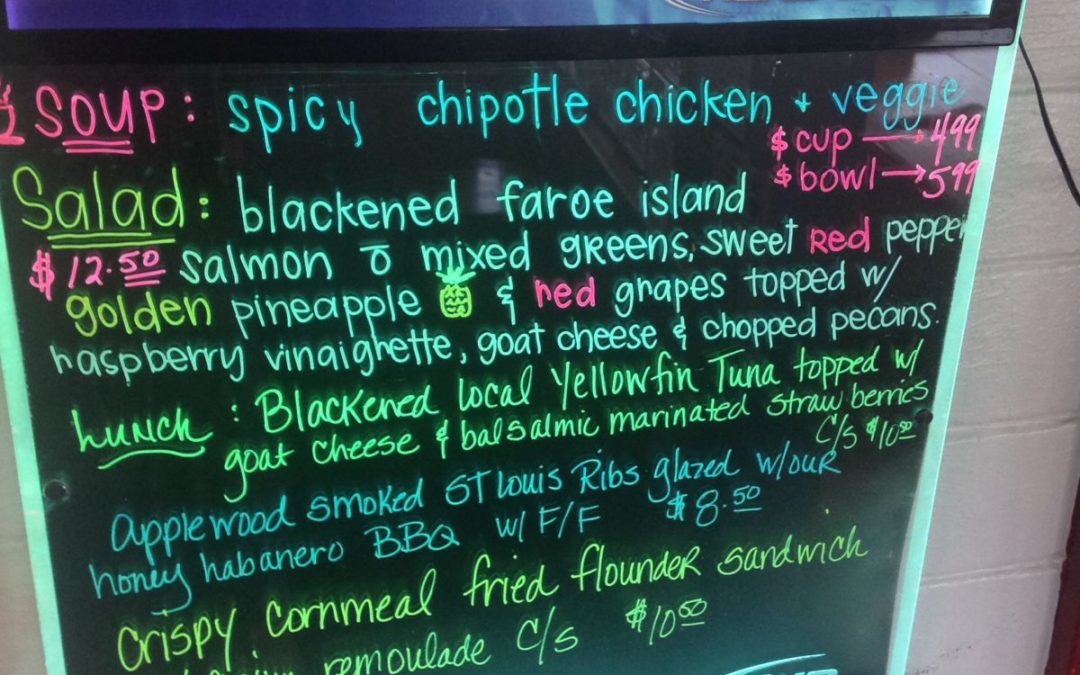 SOUP: spicy chipotle chicken + veggie
$ cup → 4.99
$ bowl → 5.99
Salad: blackened faroe island
$12.50 salmon c̄ mixed greens, sweet Red pepper
golden pineapple & red grapes topped w/
raspberry vinaighette, goat cheese & chopped pecans.
Lunch : Blackened local Yellowfin Tuna topped w/
goat cheese & balsalmic marinated strawberries
C/S $10.50
applewood smoked ST Louis Ribs glazed w/our
honey habanero BBQ w/ F/F $8.50
Crispy cornmeal fried flounder sandwich
remoulade C/S $10.50